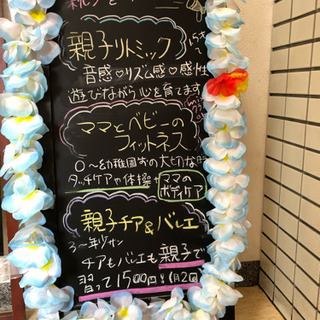 親子リトミック
音感♡リズム感♡感性
遊びながら心を育てます
ママとベビーの
フィットネス
0〜幼稚園までの大切な時
タッチケアや体操
ママの
ボディケア
親子チア&バレエ
3〜年少サン
チアもバレエも親子で
習って1500円!月2回